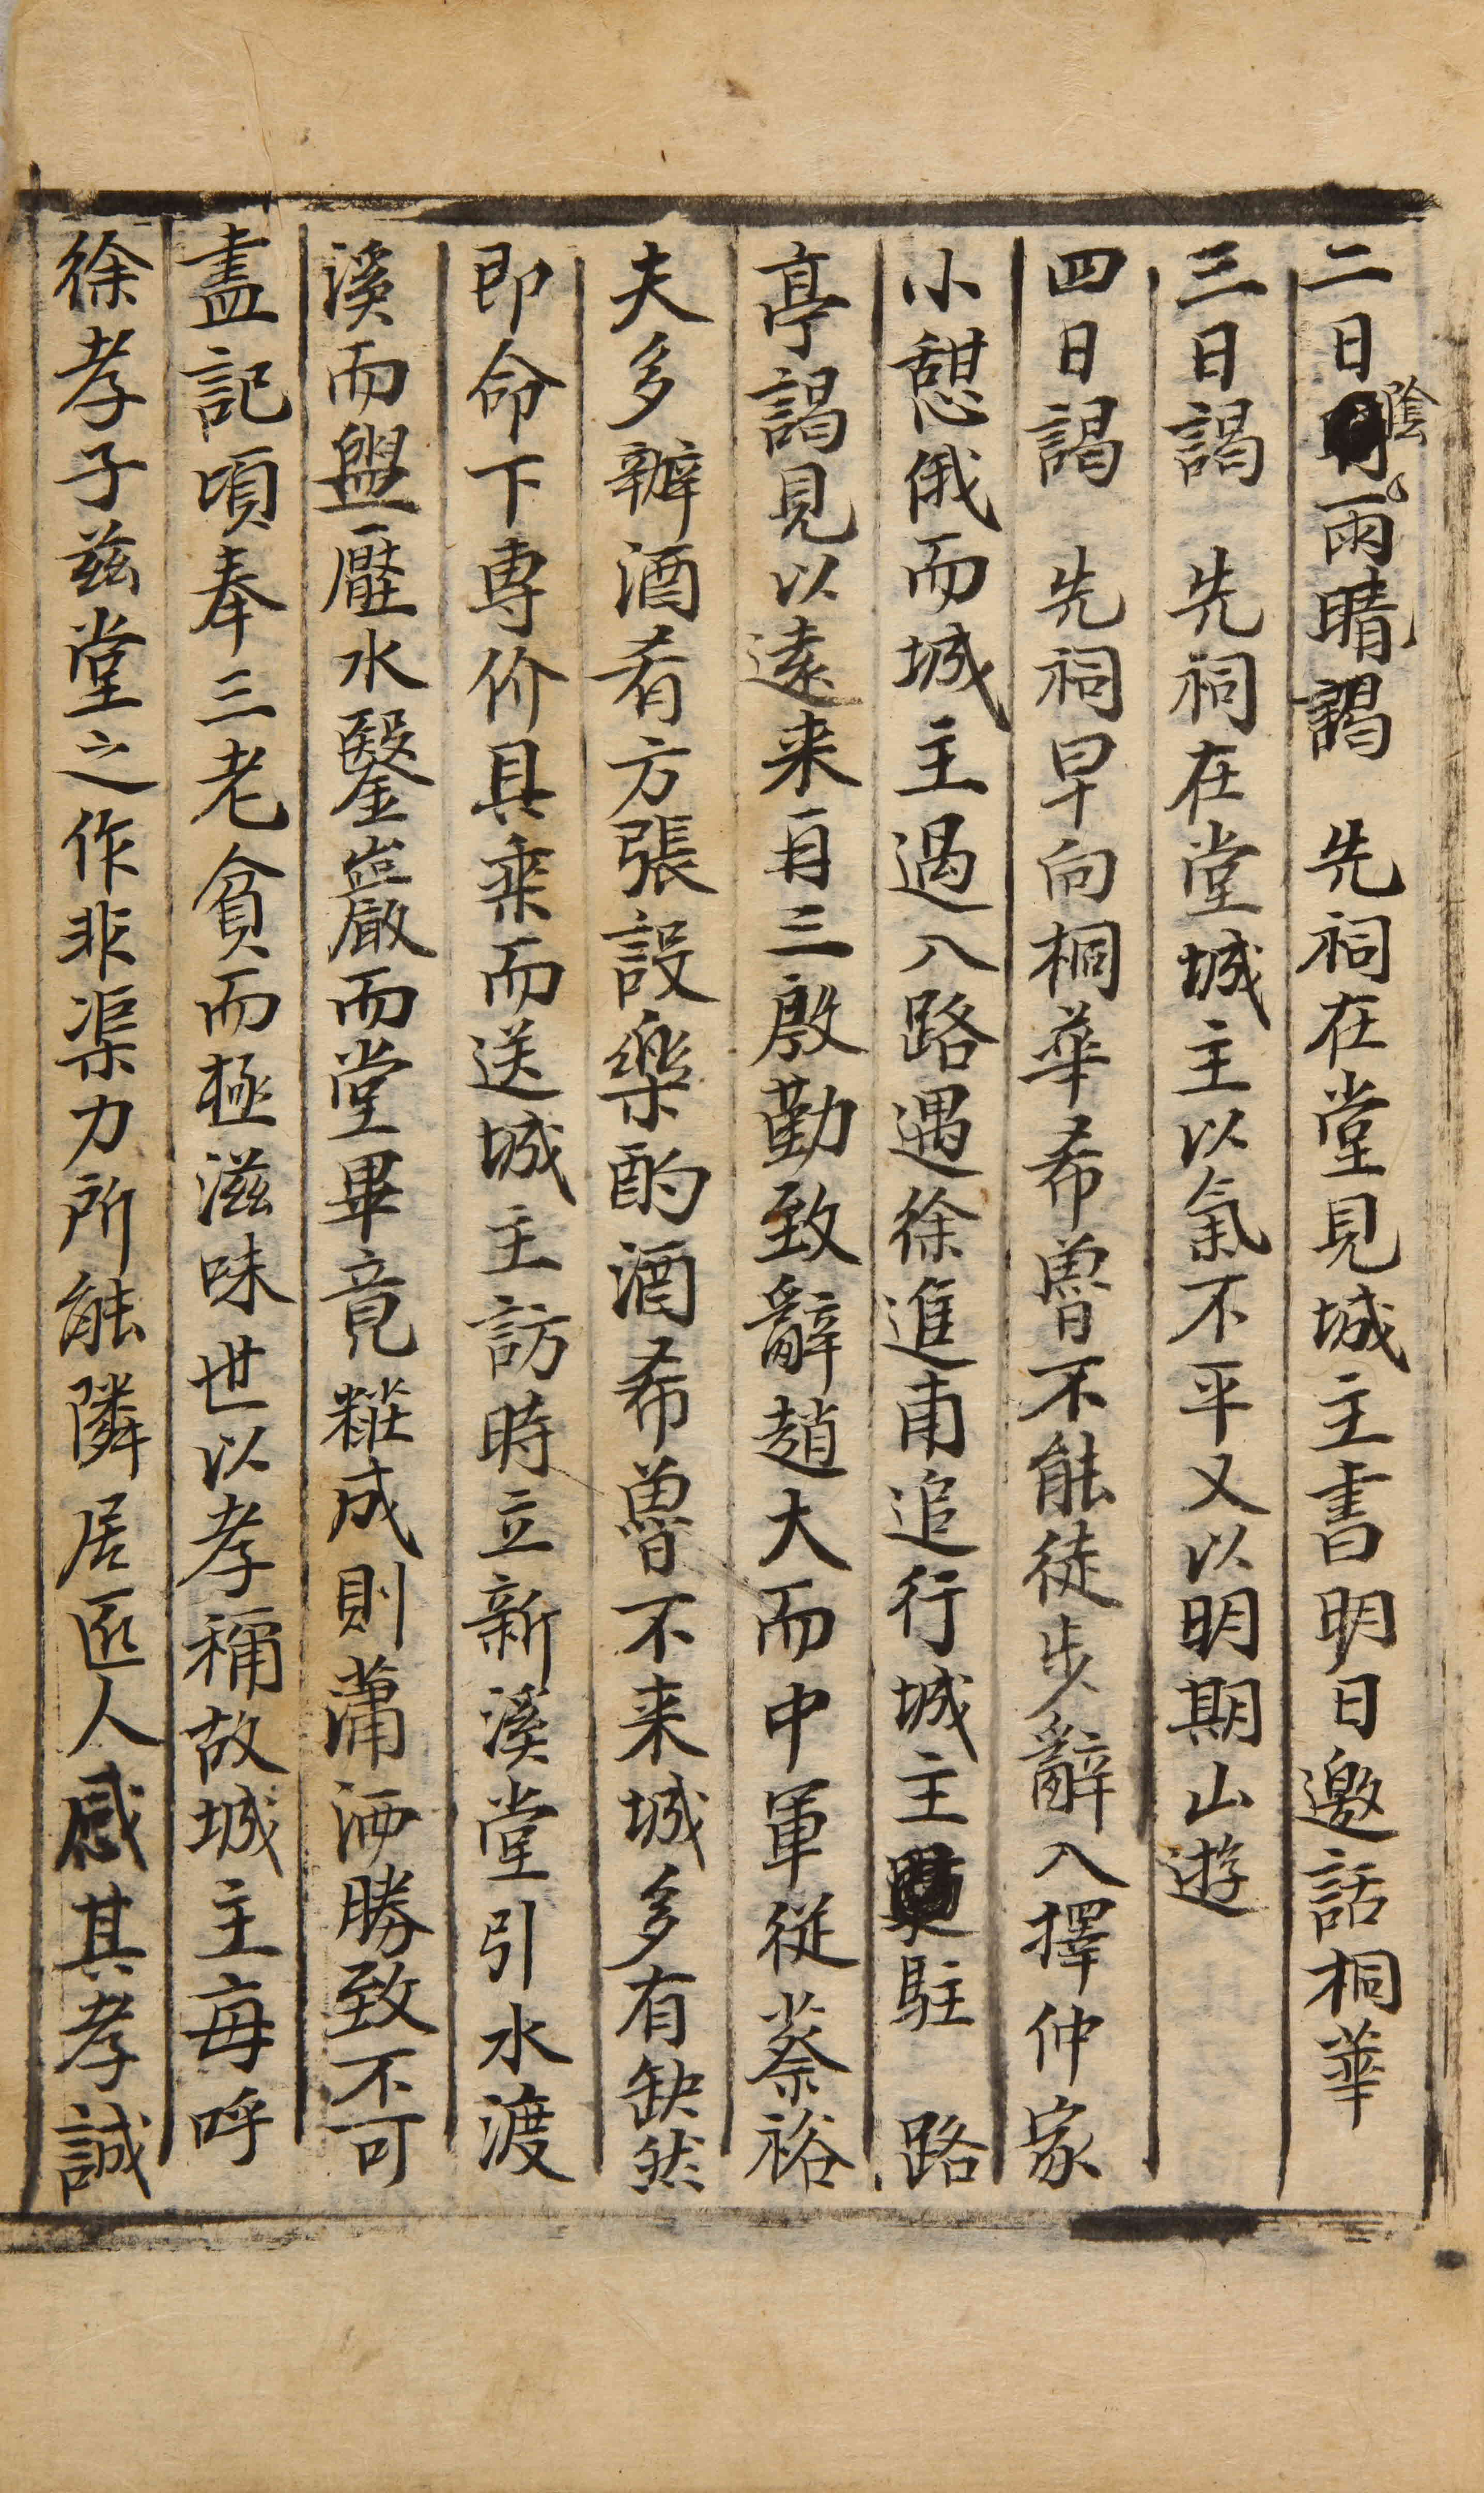 二日陰雨晴謁　先祠在堂見城主書明日邀話桐華
三日謁　先祠在堂城主以氣不平又以明期山遊
四日謁　先祠早向桐華希魯不能徒步辭入擇仲家
小憩俄而城主過入路遇徐進甫追行城主駐　路
亭謁見以遠来自三殷勤致辭趙大而中軍従蔡裕
夫多辦酒肴方張設樂酌酒希魯不来城多有缺然
即命下專价具乘而送城主訪時立新溪堂引水渡
溪而盥壓水鑿巖而堂畢竟糚成則蕭洒勝致不可
盡記頃奉三老貧而極滋味世以孝稱故城主每呼
徐孝子兹堂之作非渠力所能隣居匠人感其孝誠